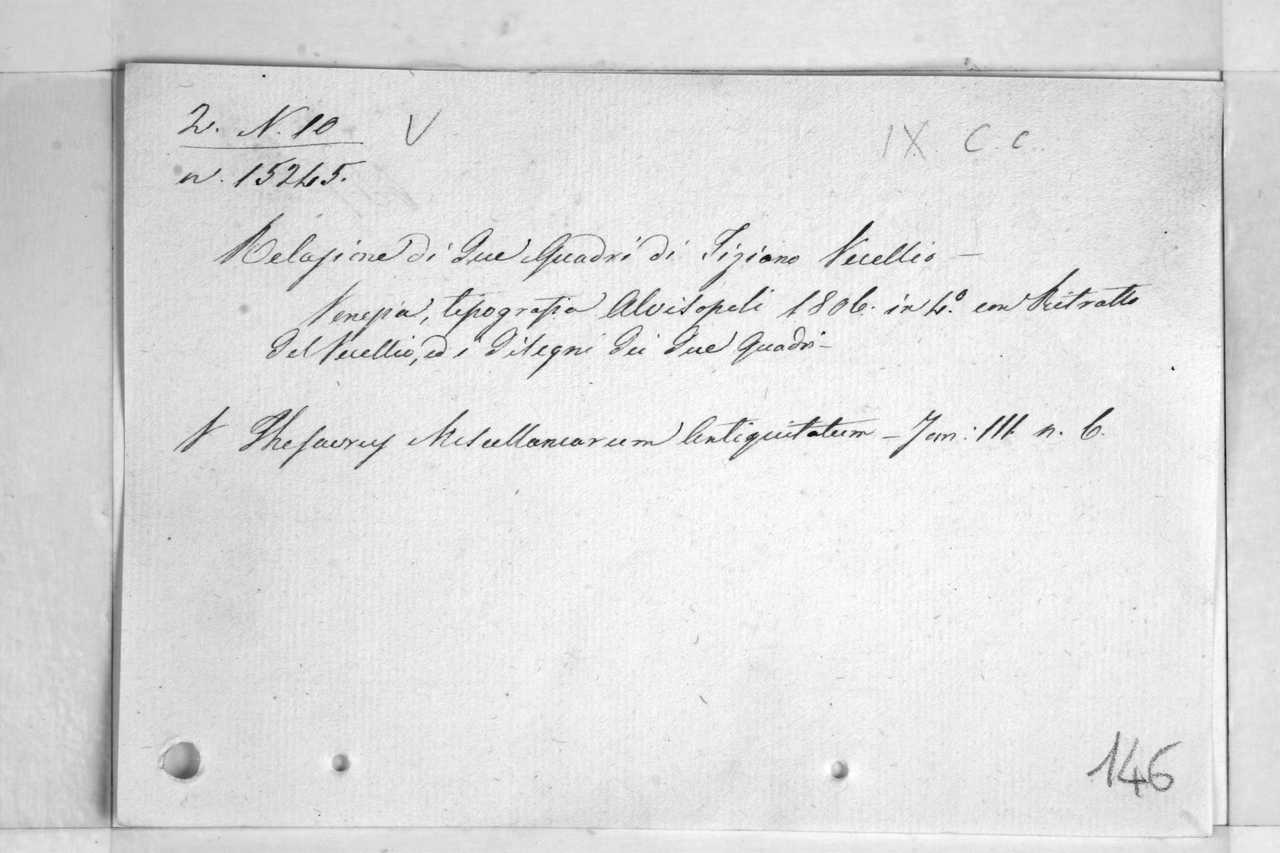 2. N. 10 V IX C. C.
n. 15245.
Relazione di due Quadri di Tiziano Vecellio –
Venezia, tipografia Alvisopoli 1806. in 4.º con Ritratto
del Vecellio, ed i disegni dei due quadri –
V Thesaurus Miscellanearum Antiquitatum – Tom: III n. 6.
146